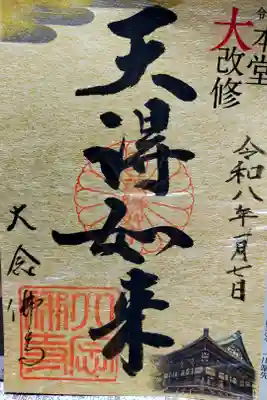 令
本堂
大改修
天得如来
令和八年一月七日
大念佛寺
大念佛寺